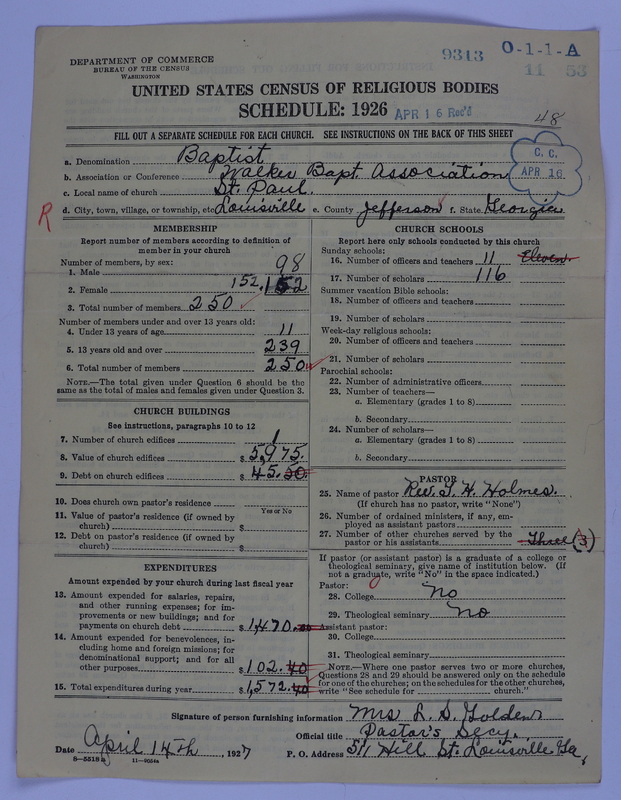 DEPARTMENT OF COMMERCE
BUREAU OF THE CENSUS
WASHINGTON
9313 O-1-1-A
11 53
UNITED STATES CENSUS OF RELIGIOUS BODIES
SCHEDULE: 1926 APR 16 Rec'd 48
FILL OUT A SEPARATE SCHEDULE FOR EACH CHURCH. SEE INSTRUCTIONS ON THE BACK OF THIS SHEET
a. Denomination Baptist
b. Association or Conference Walker Bapt. Association
C. C. APR 16
c. Local name of church St. Paul.
R d. City, town, village, or township, etc. Louisville e. County Jefferson f. State Georgia
MEMBERSHIP
Report number of members according to definition of
member in your church
Number of members, by sex:
1. Male 98
2. Female 152. 152
3. Total number of members 250
Number of members under and over 13 years old:
4. Under 13 years of age 11
5. 13 years old and over 239
6. Total number of members 250
NOTE.—The total given under Question 6 should be the
same as the total of males and females given under Question 3.
CHURCH BUILDINGS
See instructions, paragraphs 10 to 12
7. Number of church edifices 1
8. Value of church edifices $ 5,975.
9. Debt on church edifices $ 45.50
10. Does church own pastor's residence
Yes or No
11. Value of pastor's residence (if owned by
church) $
12. Debt on pastor's residence (if owned by
church) $
EXPENDITURES
Amount expended by your church during last fiscal year
13. Amount expended for salaries, repairs,
and other running expenses; for im-
provements or new buildings; and for
payments on church debt $ 1,470.
14. Amount expended for benevolences, in-
cluding home and foreign missions; for
denominational support; and for all
other purposes $ 102.40
15. Total expenditures during year $ 1,572.40
CHURCH SCHOOLS
Report here only schools conducted by this church
Sunday schools:
16. Number of officers and teachers 11 Eleven
17. Number of scholars 116
Summer vacation Bible schools:
18. Number of officers and teachers
19. Number of scholars
Week-day religious schools:
20. Number of officers and teachers
21. Number of scholars
Parochial schools:
22. Number of administrative officers
23. Number of teachers—
a. Elementary (grades 1 to 8)
b. Secondary
24. Number of scholars—
a. Elementary (grades 1 to 8)
b. Secondary
PASTOR
25. Name of pastor Rev. T. H. Holmes.
(If church has no pastor, write "None")
26. Number of ordained ministers, if any, em-
ployed as assistant pastors
27. Number of other churches served by the
pastor or his assistants Three (3)
If pastor (or assistant pastor) is a graduate of a college or
theological seminary, give name of institution below. (If
not a graduate, write "No" in the space indicated.)
Pastor:
28. College No
29. Theological seminary No
Assistant pastor:
30. College
31. Theological seminary
NOTE.—Where one pastor serves two or more churches,
Questions 28 and 29 should be answered only on the schedule
for one of the churches; on the schedules for the other churches,
write "See schedule for church."
Signature of person furnishing information Mrs L. S. Golden
Official title Pastor's Secy.
Date April 14th, 1927 P. O. Address 511 Hill St. Louisville Ga,
8—5518 a 11—9054a